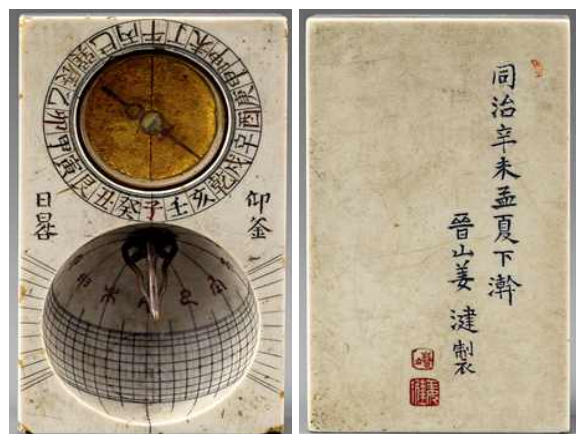 子癸丑艮寅甲卯乙辰巽巳丙午丁未坤申庚酉辛戌乾亥壬
仰釜
日晷
同治辛未孟夏下澣
晉山姜湕製